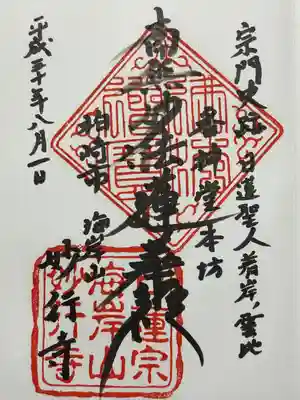 宗門史跡日蓮聖人着岸ノ霊地
番神堂本坊
南無妙法蓮華経
柏崎市
海岸山
妙行寺
平成三十年八月一日